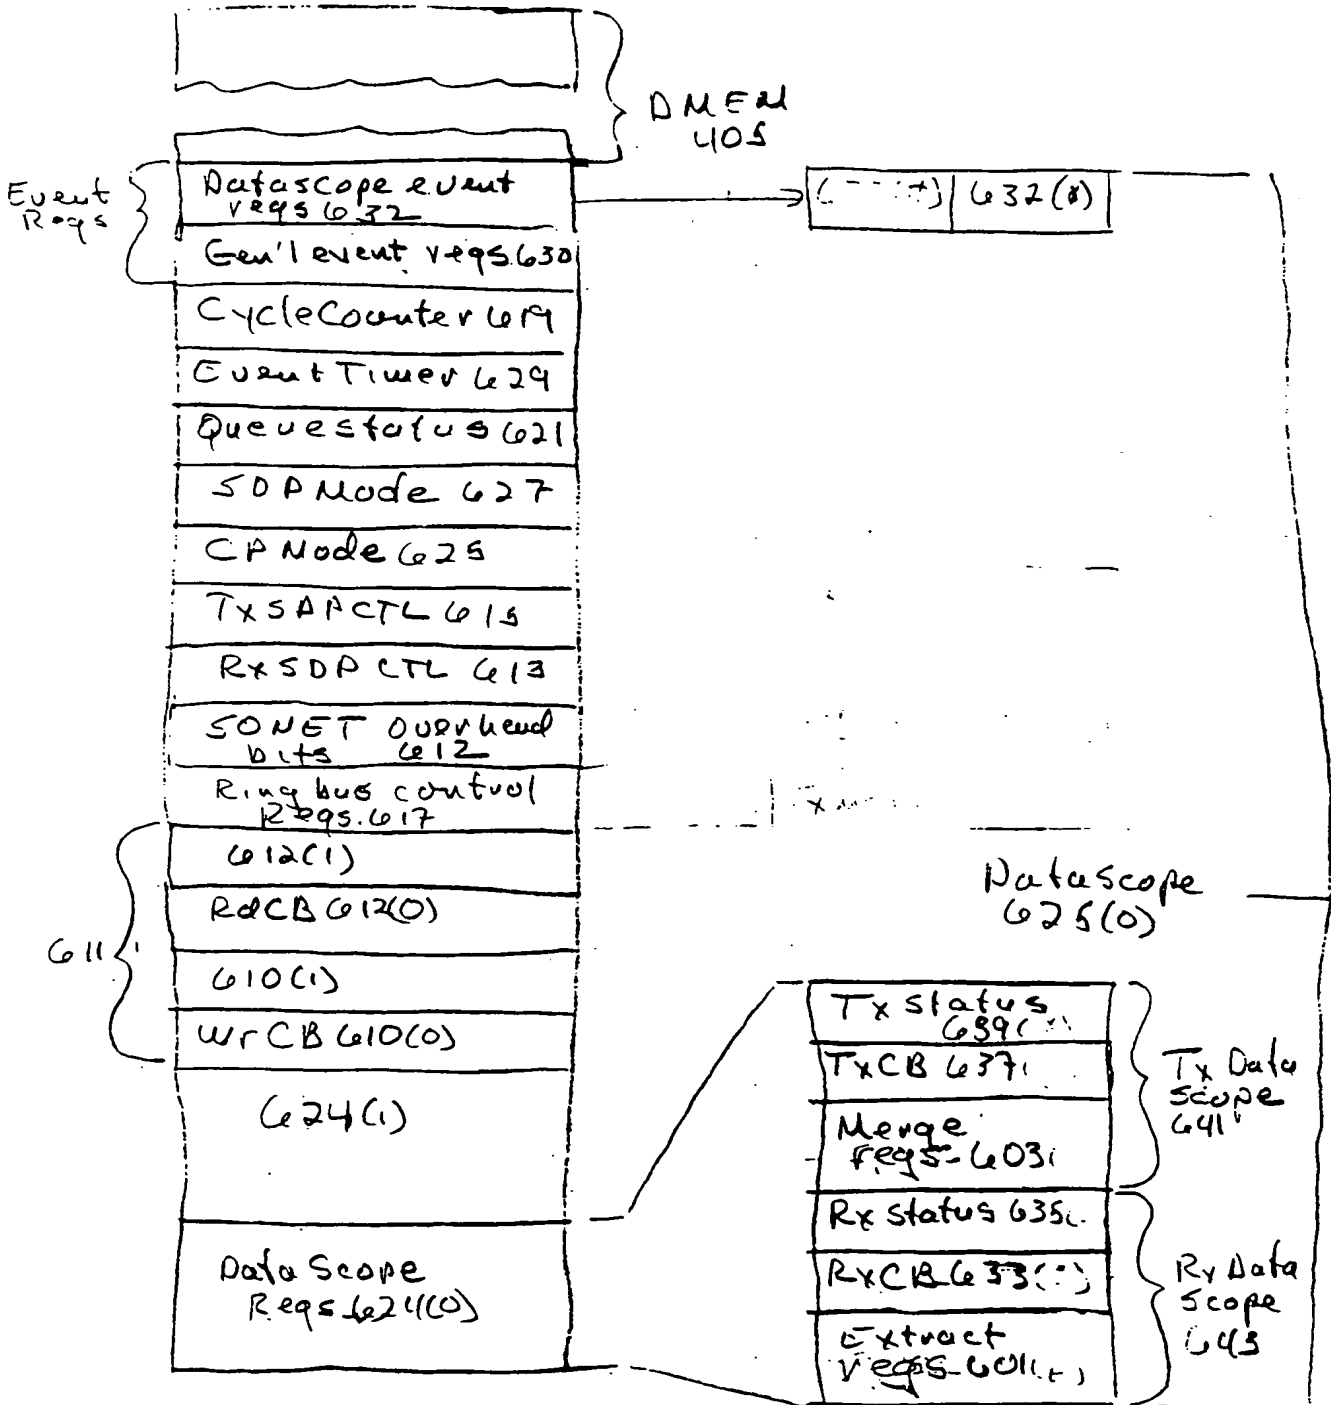 DMEM
405
Event
Regs
Datascope event
regs 632
632(0)
Gen'l event regs. 630
CycleCounter 619
Event Timer 629
Queue status 621
SDP Mode 627
CP Mode 625
Tx SDP CTL 615
Rx SDP CTL 613
SONET overhead
bits 612
Ring bus control
Regs. 617
611
612(1)
RdCB 612(0)
610(1)
WrCB 610(0)
624(1)
Data Scope
Regs 624(0)
DataScope
625(0)
Tx status
639(
TxCB 637
Merge
regs 603
Tx Data
scope
641
Rx status 635
RxCB 633( )
Extract
regs 601( )
Rx Data
scope
643